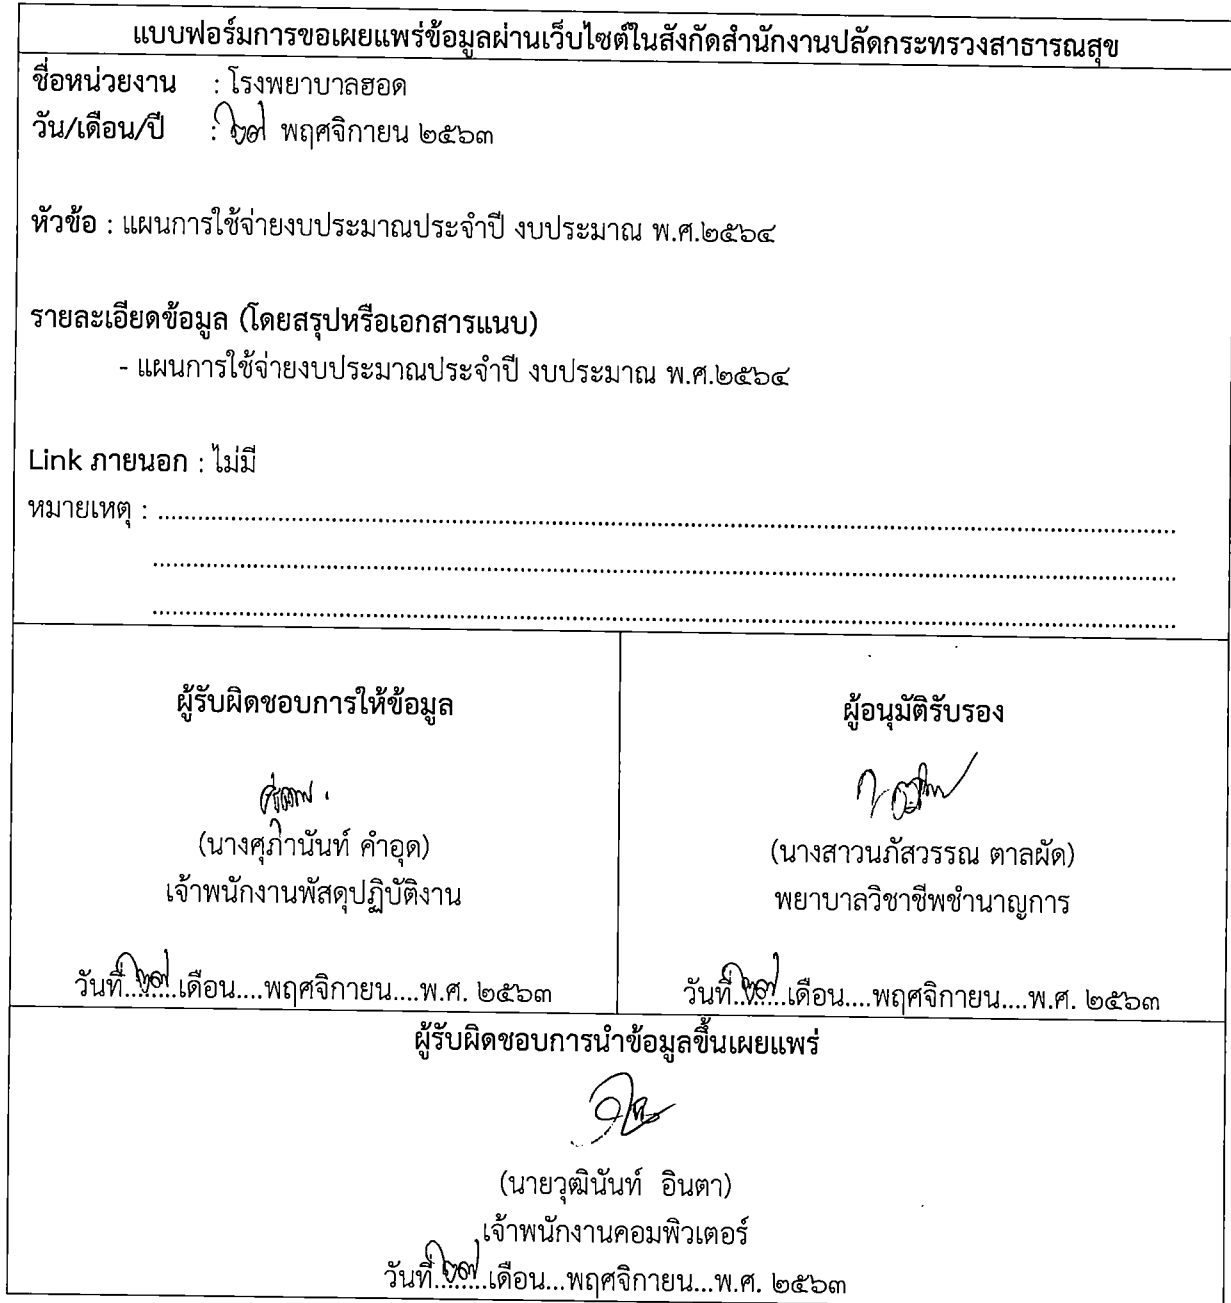 แบบฟอร์มการขอเผยแพร่ข้อมูลผ่านเว็บไซต์ในสังกัดสำนักงานปลัดกระทรวงสาธารณสุข
ชื่อหน่วยงาน : โรงพยาบาลฮอด
วัน/เดือน/ปี : ๒๗ พฤศจิกายน ๒๕๖๓
หัวข้อ : แผนการใช้จ่ายงบประมาณประจำปี งบประมาณ พ.ศ.๒๕๖๔
รายละเอียดข้อมูล (โดยสรุปหรือเอกสารแนบ)
- แผนการใช้จ่ายงบประมาณประจำปี งบประมาณ พ.ศ.๒๕๖๔
Link ภายนอก : ไม่มี
หมายเหตุ : ........................................................................
........................................................................
........................................................................
ผู้รับผิดชอบการให้ข้อมูล
(นางศุภานันท์ คำอุด)
เจ้าพนักงานพัสดุปฏิบัติงาน
วันที่..๒๗..เดือน....พฤศจิกายน....พ.ศ. ๒๕๖๓
ผู้อนุมัติรับรอง
(นางสาวนภัสวรรณ ตาลผัด)
พยาบาลวิชาชีพชำนาญการ
วันที่..๒๗..เดือน....พฤศจิกายน....พ.ศ. ๒๕๖๓
ผู้รับผิดชอบการนำข้อมูลขึ้นเผยแพร่
(นายวุฒินันท์ อินตา)
เจ้าพนักงานคอมพิวเตอร์
วันที่..๒๗..เดือน...พฤศจิกายน...พ.ศ. ๒๕๖๓